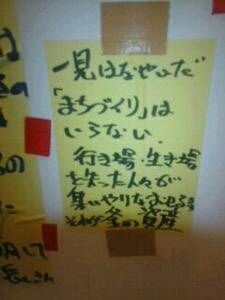 一見はなやいだ
「まちづくり」は
いらない.
行き場・生き場
を失った人々が
集いやりなおせる
それが釜の資産
は
の
の
に
明して
長くさん